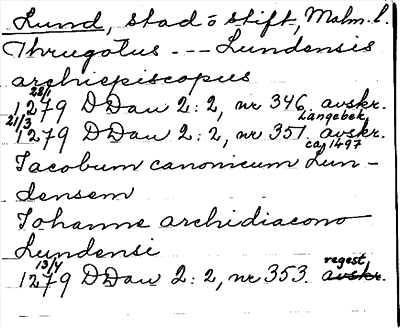 Lund, stad o stift, Malm. l.
Thrugotus --- Lundensis
archiepiscopus
28/1
1279 DDan 2:2, nr 346. avskr.
Langebek
21/3
1279 DDan 2:2, nr 351. avskr.
ca 1497
Jacobum canonicum Lun-
densem
Johanne archidiacono
Lundensi
13/7 regest.
1279 DDan 2:2, nr 353. avskr.